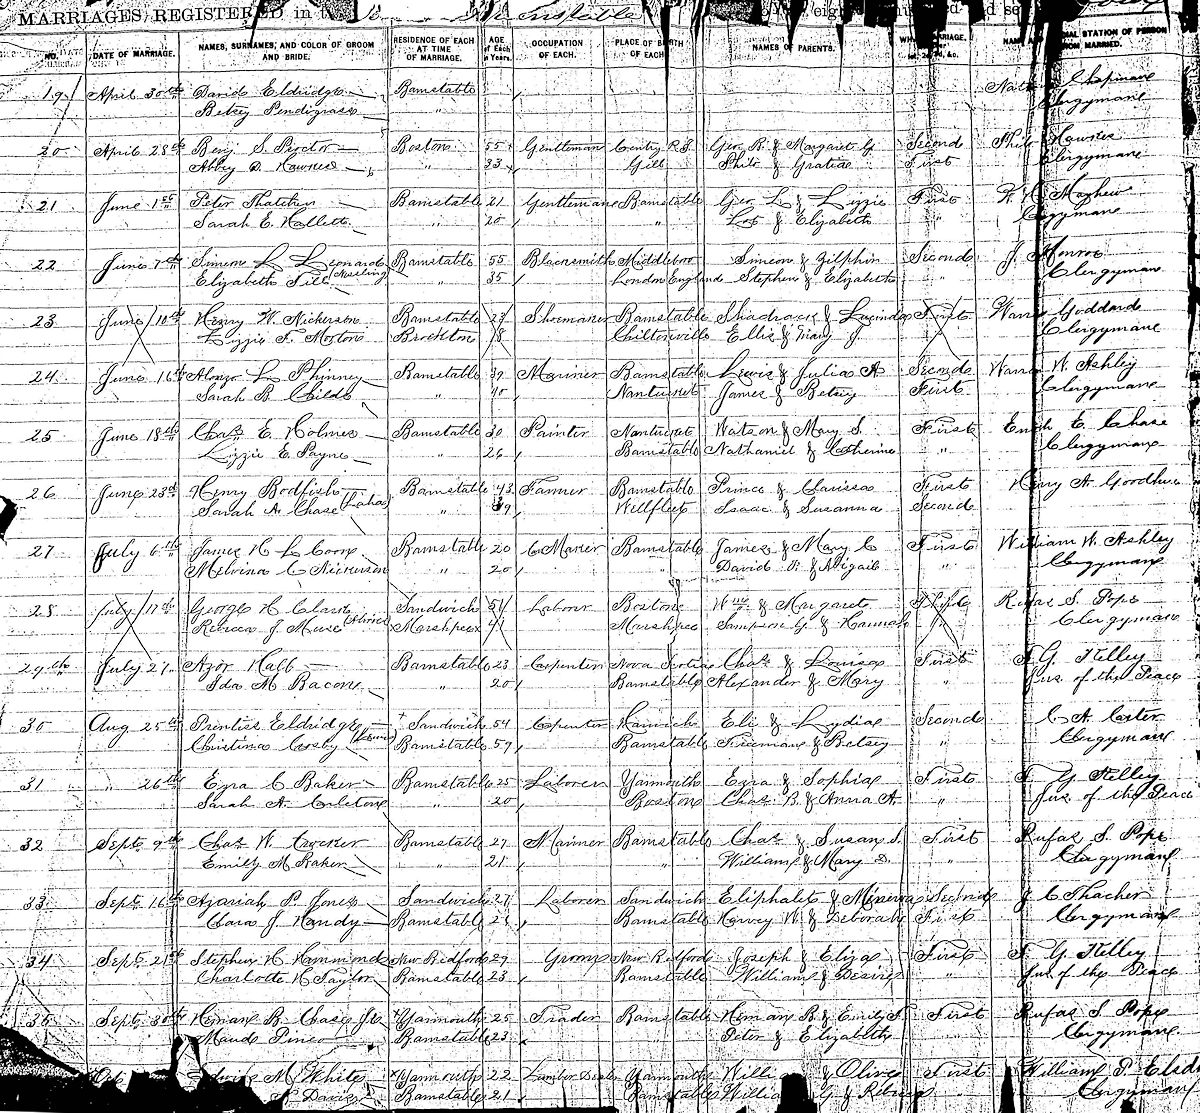 MARRIAGES REGISTERED in
No. DATE OF MARRIAGE. NAMES, SURNAMES, AND COLOR OF GROOM AND BRIDE. RESIDENCE OF EACH AT TIME OF MARRIAGE. AGE of Each in Years. OCCUPATION OF EACH. PLACE OF BIRTH OF EACH. NAMES OF PARENTS.
19 April 30th David Eldridge Barnstable Chapman
Betsey Pendigrass Clergyman
20 April 28th Benj. S. Proctor Boston 55 Gentleman R.I. Geo. R. & Margaret G. Second Hawes
Abbey D. Hawes " 33 Gill Philo & Gratia First Clergyman
21 June 1st Peter Thatcher Barnstable 21 Gentleman Barnstable Geo. L. & Lizzie First Mayhew
Sarah E. Hallett " 20 " Lot & Elizabeth " Clergyman
22 June 7th Simeon L. Leonard Barnstable 55 Blacksmith Middleboro Simeon & Zilphia Second J. Monroe
Elizabeth " 35 London England Stephen & Elizabeth " Clergyman
23 June 10th Henry W. Nickerson Barnstable 27 Shoemaker Barnstable Shadrach & Lucinda First Goddard
Lizzie F. Morton Brockton 18 Chiltonville Ellis & Mary J. Clergyman
24 June 16th Alonzo L. Phinney Barnstable 39 Mariner Barnstable Lewis & Julia A Second W. Ashley
Sarah B. Childs " 40 Nantucket James & Betsey First Clergyman
25 June 18th Chas. E. Holmes Barnstable 30 Painter Nantucket Watson & Mary S. First E. Chase
Lizzie E. Payne " 26 Barnstable Nathaniel & Catherine " Clergyman
26 June 23d Henry Bodfish Barnstable 43 Farmer Barnstable Prince & Clarissa First Henry A. Goodhue
Sarah A. Chase " 39 Wellfleet Isaac & Susanna Second
27 July 6th James H. L. Coon Barnstable 20 Barnstable James & Mary C First William W. Ashley
Melvina C Nickerson " 20 " David & Abigail Clergyman
28 July 17th George H. Clark Sandwich 51 Laborer Boston Wm & Margaret Third Rufus S. Pope
Rebecca J. Marshpee 41 Marshpee Simpson G. & Hannah " Clergyman
29th July 27 Azor Hall Barnstable 23 Carpenter Nova Scotia Chas. & Louisa First F. G. Kelley
Ida M. Bacon " 20 Barnstable Alexander & Mary " Jus. of the Peace
30 Aug. 25th Prentiss Eldridge Sandwich 54 Carpenter Harwich Eli & Lydia Second C. A. Carter
Christina Crosby Barnstable 59 Barnstable Freeman & Betsey " Clergyman
31 " 26th Ezra C Baker Barnstable 25 Laborer Yarmouth Ezra & Sophia First F. G. Kelley
Sarah A. Carleton " 20 Boston Chas. B. & Anna A. " Jus. of the Peace
32 Sept. 9th Chas. W. Crocker Barnstable 27 Mariner Barnstable Chas. & Susan S. First Rufus S. Pope
Emily M. Baker " 21 " William & Mary S. " Clergyman
33 Sept. 16th Azariah P. Jones Sandwich 27 Laborer Sandwich Eliphalet & Minerva Second J. C. Thacher
Clara J. Handy Barnstable Barnstable Harvey W. & Deborah First Clergyman
34 Sept. 21st Stephen H. Hammond New Bedford 29 Groom New Bedford Joseph & Eliza First F. G. Kelley
Charlotte H. Taylor Barnstable 23 Barnstable William & Desire Jus. of the Peace
35 Sept. 30th Heman B. Chase Jr. Yarmouth 25 Trader Barnstable Heman B. & Emily F. First Rufus S. Pope
Maude Barnstable 23 Peter & Elizabeth Clergyman
M. White Yarmouth 22 Lumber Dealer Yarmouth & Olive First William P.
Davis Barnstable 21 Barnstable William G. & Clergyman